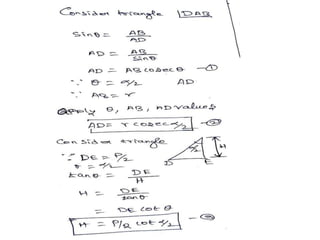 Consider triangle DAB
Sinθ = AB/AD
AD = AB/Sinθ
AD = AB cosec θ — ①
∵ θ = α/2 AD
∵ AB = r
Apply θ, AB, AD values
AD = r cosec α/2 — ②
Consider triangle
∵ DE = P/2
θ = α/2
α/2 H
tanθ = DE/H
D E
H = DE/tanθ
= DE cot θ
H = P/2 cot α/2 — ③